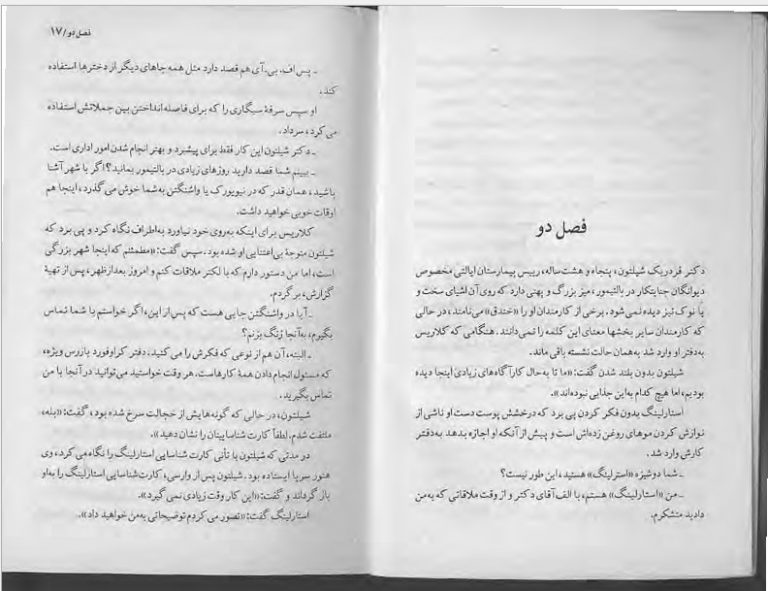 فصل دو
دکتر فردریک شیلتون، پنجاه و هشت‌ساله، رییس بیمارستان ایالتی مخصوص
دیوانگان جنایتکار در بالتیمور، میز بزرگ و پهنی دارد که روی آن اشیای سخت و
یا نوک تیز دیده نمی‌شود. برخی از کارمندان او را «خندق» می‌نامند، در حالی
که کارمندان سایر بخشها معنای این کلمه را نمی‌دانند. هنگامی که کلاریس
به‌دفتر او وارد شد به‌همان حالت نشسته باقی ماند.
شیلتون بدون بلند شدن گفت: «ما تا به‌حال کارآگاه‌های زیادی اینجا دیده
بودیم، اما هیچ کدام به‌این جذابی نبوده‌اند».
استارلینگ بدون فکر کردن پی برد که درخشش پوست دست او ناشی از
نوازش کردن موهای روغن زده‌اش است و پیش از آنکه او اجازه بدهد به‌دفتر
کارش وارد شد.
ـ شما دوشیزه «استرلینگ» هستید، این طور نیست؟
ـ من «استارلینگ» هستم، با الف آقای دکتر و از وقت ملاقاتی که به‌من
دادید متشکرم.
فصل دو/۱۷
ـ پس اف. بی. آی هم قصد دارد مثل همه جاهای دیگر از دخترها استفاده
کند.
او سپس سرفهٔ سیگاری را که برای فاصله‌انداختن بین جملاتش استفاده
می‌کرد، سرداد.
ـ دکتر شیلتون این کار فقط برای پیشبرد و بهتر انجام شدن امور اداری است.
ـ ببینم شما قصد دارید روزهای زیادی در بالتیمور بمانید؟ اگر با شهر آشنا
باشید، همان قدر که در نیویورک یا واشنگتن به‌شما خوش می‌گذرد، اینجا هم
اوقات خوبی خواهید داشت.
کلاریس برای اینکه به‌روی خود نیاورد به‌اطراف نگاه کرد و پی برد که
شیلتون متوجهٔ بی‌اعتنایی او شده بود. سپس گفت: «مطمئنم که اینجا شهر بزرگی
است، اما من دستور دارم که با لکتر ملاقات کنم و امروز بعدازظهر، پس از تهیهٔ
گزارش، برگردم.
ـ آیا در واشنگتن جایی هست که پس از این، اگر خواستم با شما تماس
بگیرم، به‌آنجا زنگ بزنم؟
ـ البته، آن هم از نوعی که فکرش را می‌کنید. دفتر کراوفورد بازرس ویژه،
که مسئول انجام دادن همهٔ کارهاست. هر وقت خواستید می‌توانید در آنجا با من
تماس بگیرید.
شیلتون، در حالی که گونه‌هایش از خجالت سرخ شده بود، گفت: «بله،
ملتفت شدم. لطفاً کارت شناساییتان را نشان دهید».
در مدتی که شیلتون با تأنی کارت شناسایی استارلینگ را نگاه می‌کرد، وی
هنوز سرپا ایستاده بود. شیلتون پس از وارسی، کارت‌شناسایی استارلینگ را به‌او
بازگرداند و گفت: «این کار وقت زیادی نمی‌گیرد».
استارلینگ گفت: «تصور می‌کردم توضیحاتی به‌من خواهید داد».